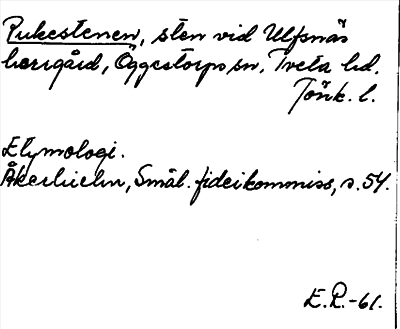 Pukestenen, sten vid Ulfsnäs
herrgård, Öggestorps sn, Tveta hd.
Jönk. l.
Etymologi.
Åkerhielm, Smål. fideikommiss, s. 54.
E.P.-61.